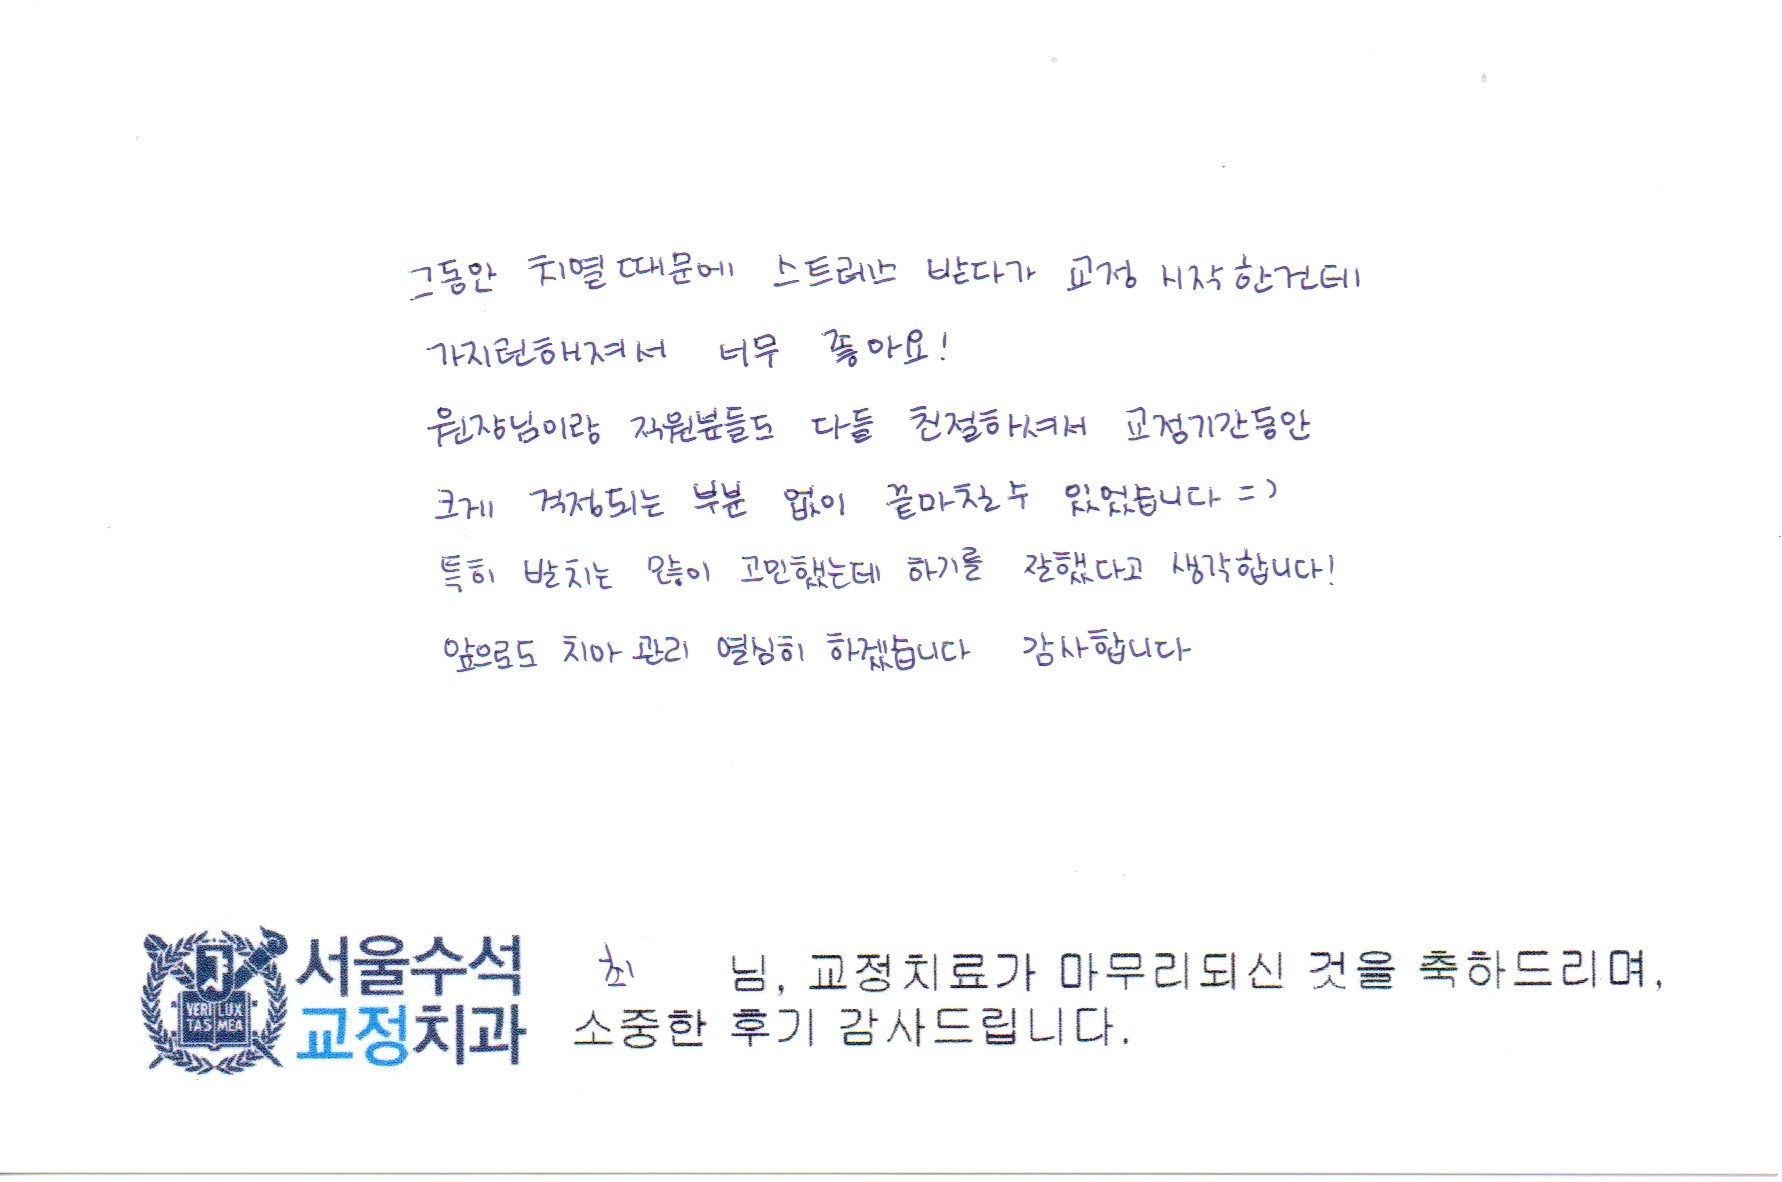 그동안 치열때문에 스트레스 받다가 교정 시작한건데
가지런해져서 너무 좋아요!
원장님이랑 직원분들도 다들 친절하셔서 교정기간동안
크게 걱정되는 부분 없이 끝마칠 수 있었습니다 =)
특히 발치는 많이 고민했는데 하기를 잘했다고 생각합니다!
앞으로도 치아 관리 열심히 하겠습니다 감사합니다
서울수석
교정치과
VERI LUX
TAS MEA
최 님, 교정치료가 마무리되신 것을 축하드리며,
소중한 후기 감사드립니다.